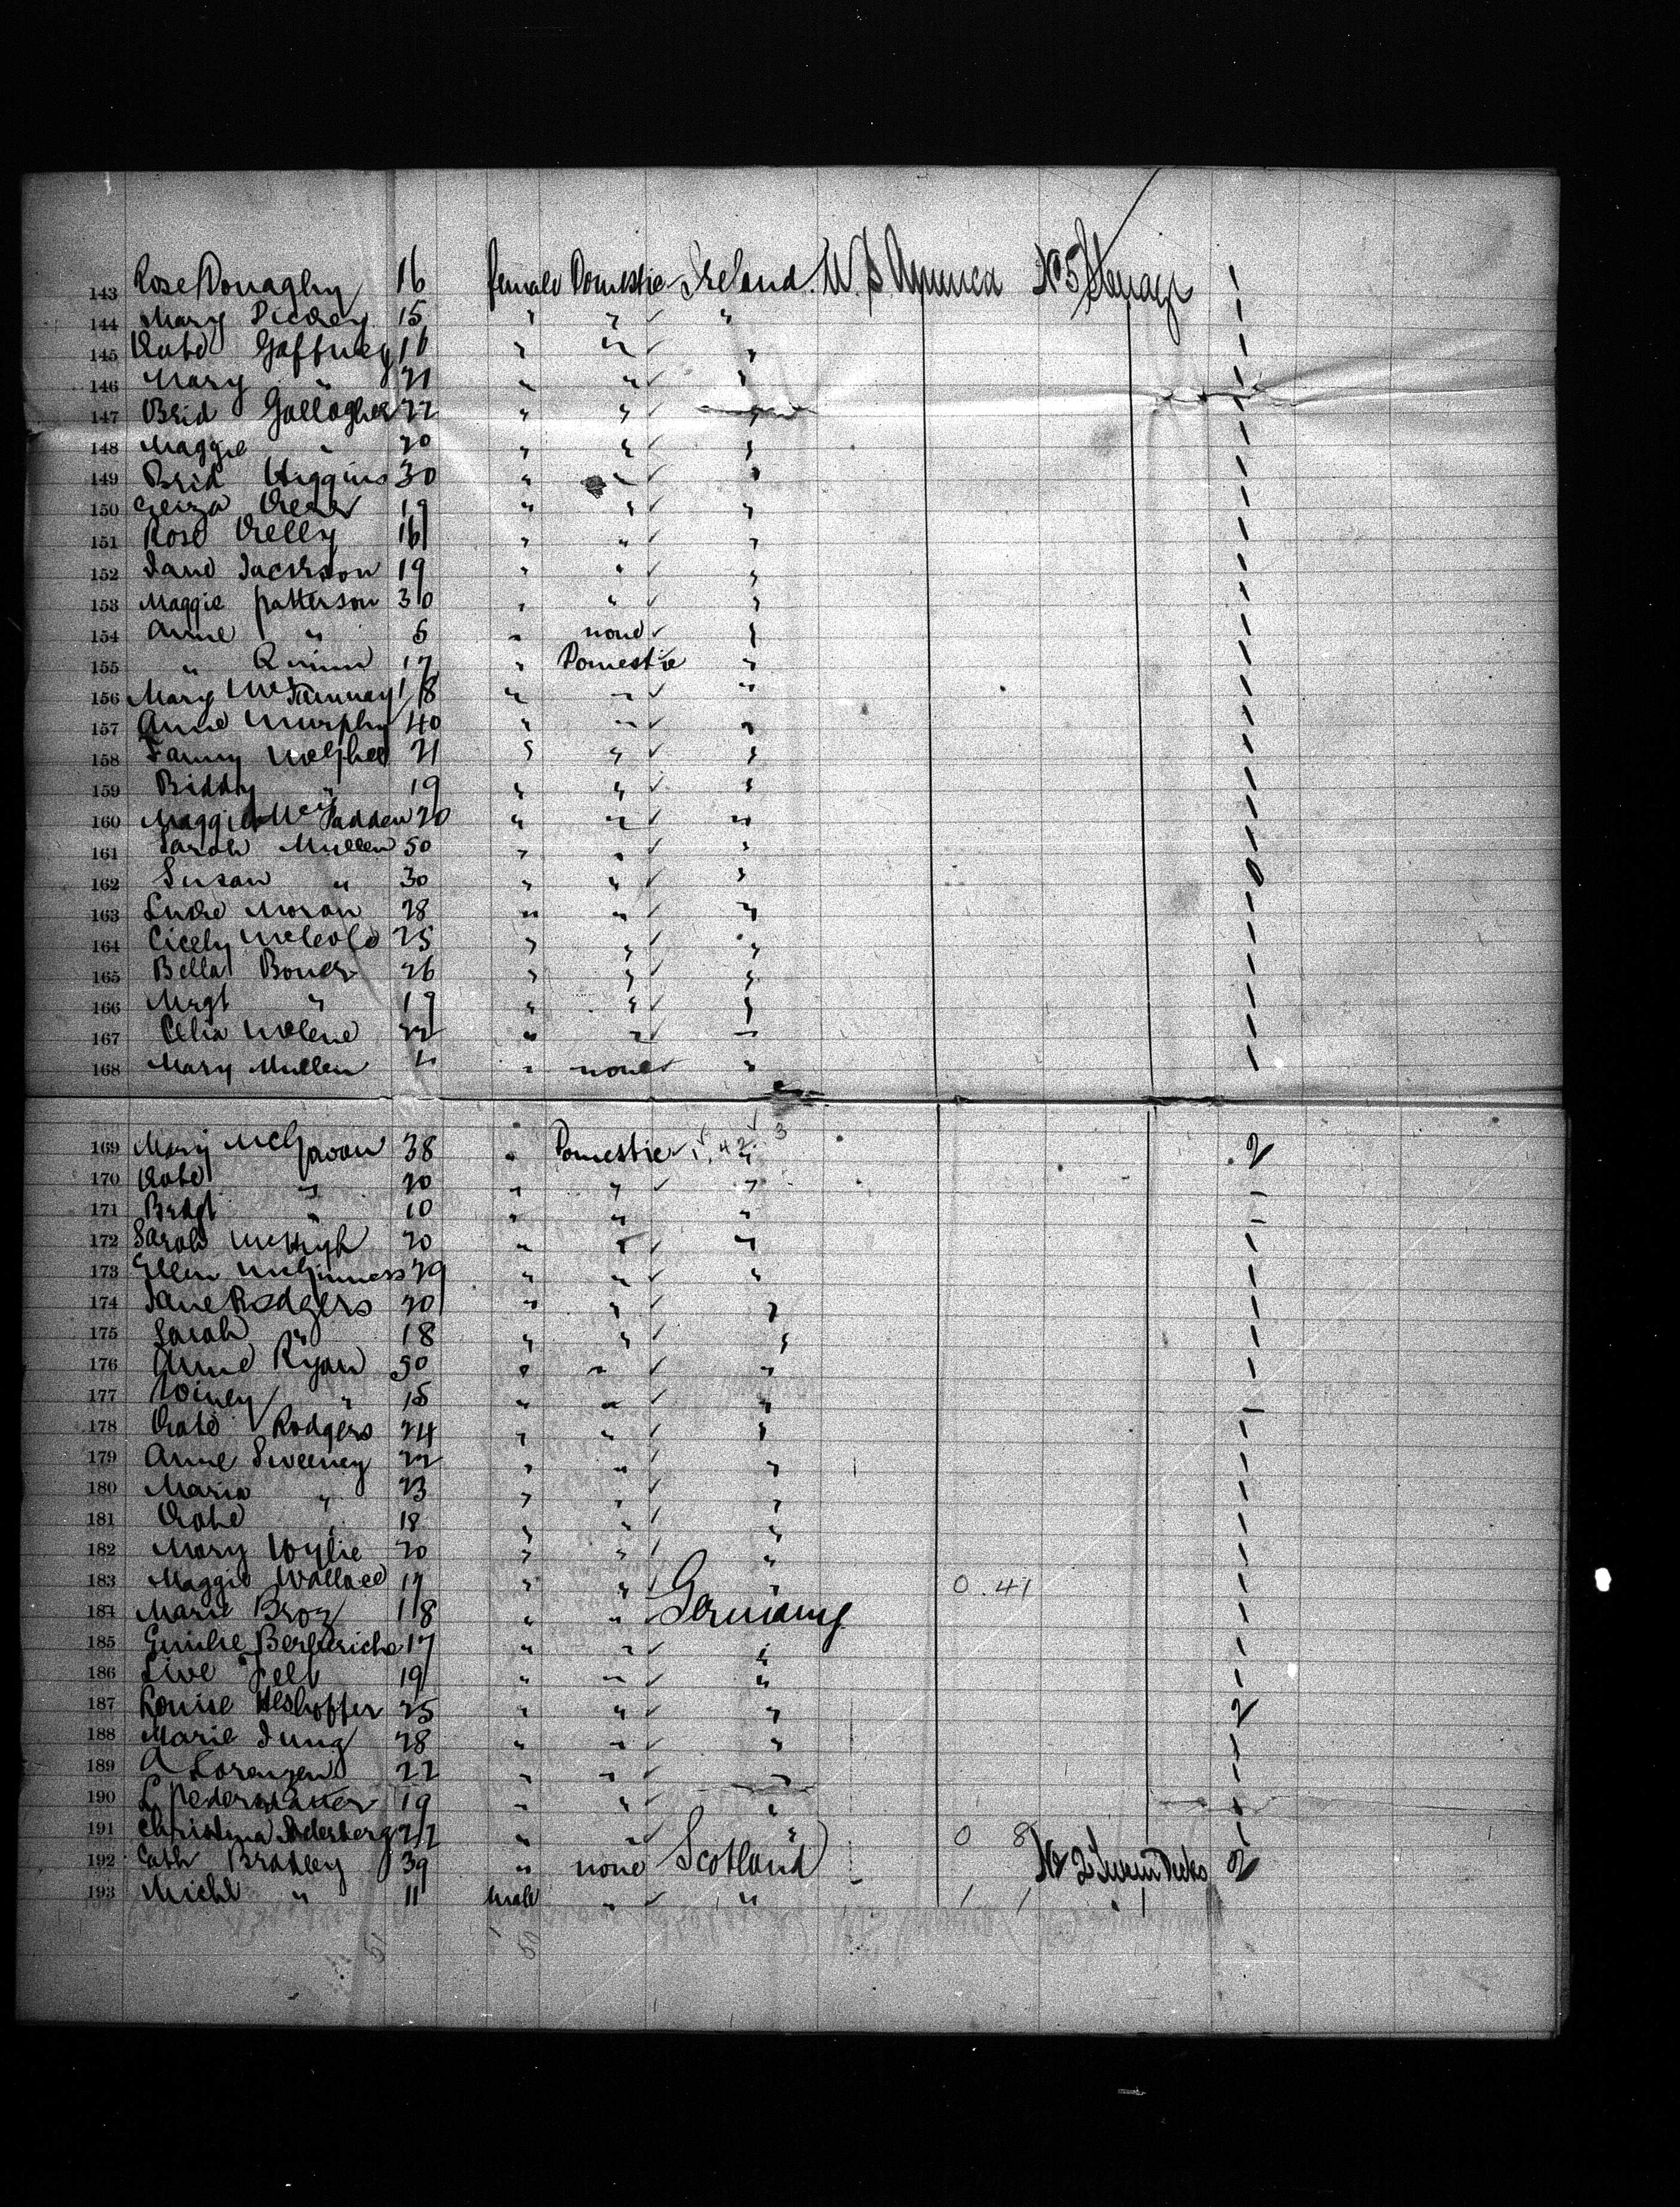 143 Rose Donaghy 16 female Domestic Ireland. U. S. America No 5 Steerage 1
144 Mary Dickey 15 " " ✓ " 1
145 Kate Gaffney 16 " " ✓ " 1
146 Mary " 21 " " ✓ " 1
147 Brid Gallagher 22 " " ✓ " 1
148 Maggie " 20 " " ✓ " 1
149 Brid Higgins 30 " " ✓ " 1
150 Eliza 19 " " ✓ " 1
151 Rose Kelly 16 " " ✓ " 1
152 Jane Jackson 19 " " ✓ " 1
153 Maggie Patterson 30 " " ✓ " 1
154 Anne " 5 " none ✓ " 1
155 " Quinn 17 " Domestic " 1
156 Mary 18 " " ✓ " 1
157 Anne Murphy 40 " " ✓ " 1
158 Fanny McGhee 21 " " ✓ " 1
159 Biddy " 19 " " ✓ " 1
160 Maggie McFadden 20 " " ✓ " 1
161 Sarah Mullen 50 " " ✓ " 1
162 Susan " 30 " " ✓ " 0
163 Moran 28 " " ✓ " 1
164 Cicely 25 " " ✓ " 1
165 Bella Boner 26 " " ✓ " 1
166 Mrgt " 19 " " ✓ " 1
167 Celia 22 " " ✓ " 1
168 Mary Mullen " none " 1
169 Mary McGavon 38 " Domestic " 2
170 Kate " 20 " " ✓ " -
171 Bridgt " 10 " " " -
172 Sarah McHugh 20 " " ✓ " 1
173 Ellen McGinness 29 " " ✓ " 1
174 Jane Rodgers 20 " " ✓ " 1
175 Sarah " 18 " " ✓ " 1
176 Anne Ryan 50 " " ✓ " 1
177 Winey " 15 " " " -
178 Kate Rodgers 24 " " ✓ " 1
179 Anne Sweeney 22 " " ✓ " 1
180 Maria " 23 " " ✓ " 1
181 Kate " 18 " " ✓ " 1
182 Mary Wylie 20 " " ✓ " 1
183 Maggie Wallace 17 " " ✓ " 0.41 1
184 Marie Broz 18 " " Germany 1
185 Emilie 17 " " ✓ " 1
186 19 " " ✓ " 1
187 Louise 25 " " ✓ " 2
188 Marie Jung 28 " " ✓ " 1
189 A Lorenzen 22 " " ✓ " 1
190 19 " " ✓ " 1
191 Christina 22 " " " 0 8 1
192 Cath Bradley 39 " none Scotland No 2 Tween Decks 2
193 Michl " 11 Male " ✓ " 1 1 1